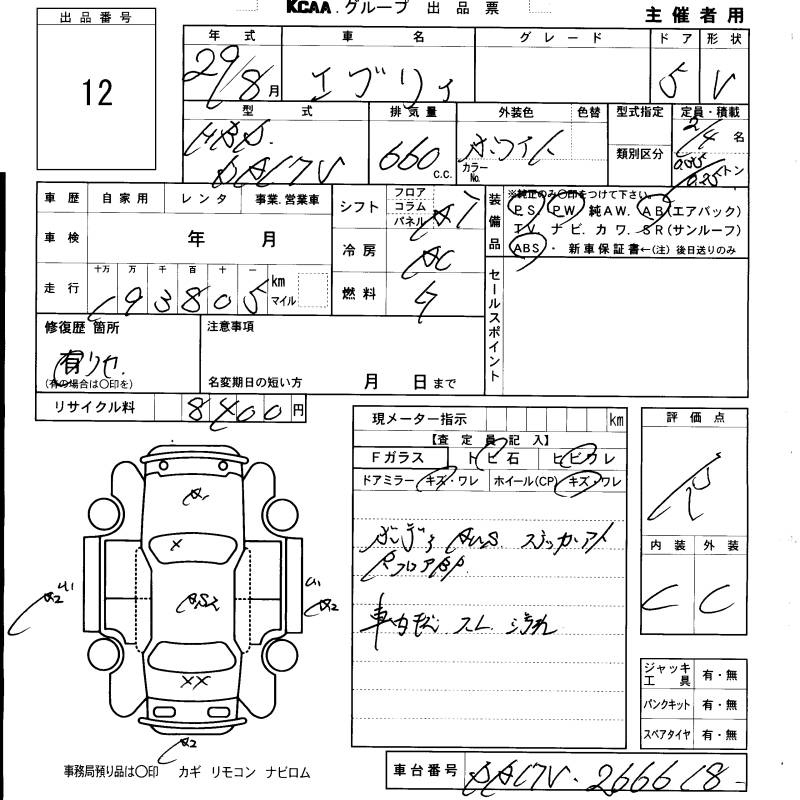 KCAA.グループ 出品票
主催者用
出品番号
12
年式 車名 グレード ドア 形状
29/8月 エブリィ 5 V
型式 排気量 外装色 色替 型式指定 定員・積載
HBD 2/4名
DA17V 660 c.c. ホワイト カラーNo. 類別区分 トン
車歴 自家用 レンタ 事業.営業車
車検 年 月
走行 十万 万 千 百 十 一 km マイル
193805
シフト フロア コラム パネル AT
冷房 AC
燃料
装備品 ※純正のみ〇印をつけて下さい。
P.S. P.W 純A.W. A.B(エアバック)
T.V. ナビ. カワ. S.R(サンルーフ)
ABS ・ 新車保証書←(注)後日送りのみ
セールスポイント
修復歴 箇所
有
(有の場合は〇印を)
注意事項
名変期日の短い方 月 日まで
リサイクル料 8400円
現メーター指示 km
【査定員記入】
Fガラス トビ石 ヒビワレ
ドアミラー キズ・ワレ ホイール(CP) キズ・ワレ
車内 スレ 汚れ
評価点
R
内装 外装
C C
A1
X
U1
A2
U1
A2
XX
A2
ジャッキ工具 有・無
パンクキット 有・無
スペアタイヤ 有・無
事務局預り品は〇印 カギ リモコン ナビロム
車台番号 DA17V-266618-